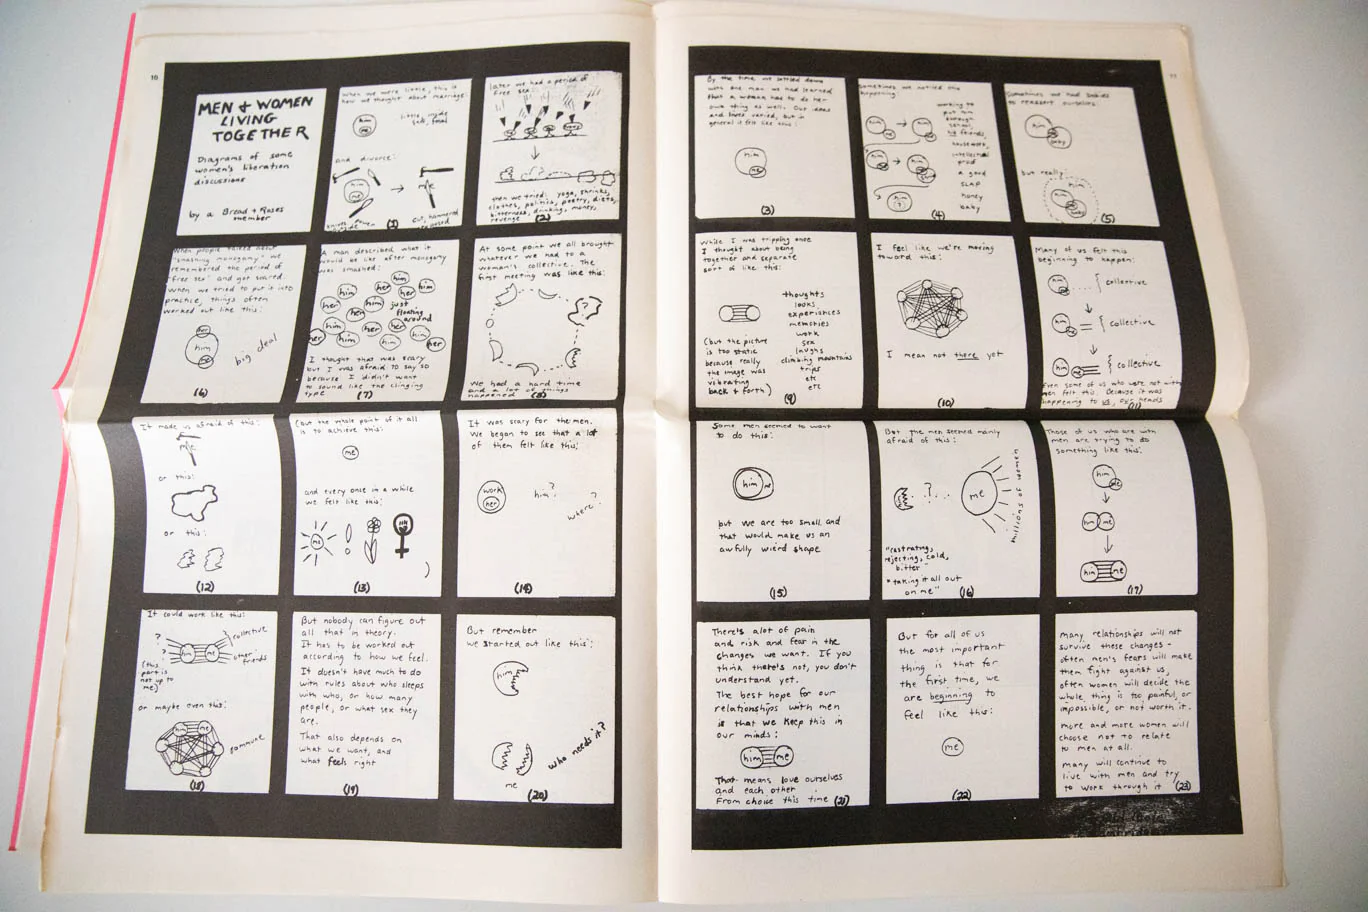 10
MEN & WOMEN
LIVING
TOGETHER
Diagrams of some
women's liberation
discussions
by a Bread & Roses
member
When we were little, this is
how we thought about marriage:
him
me
and divorce:
him
me
me
(1)
later we had a period of
free sex
then we tried, yoga, shrinks,
clothes, politics, poetry, diets,
bitterness, drinking, money,
revenge
(2)
When people talked about
"smashing monogamy" we
remembered the period of
"free sex" and got scared.
When we tried to put it into
practice, things often
worked out like this:
her
him
me
big deal
(6)
A man described what it
would be like after monogamy
was smashed:
him
him
her
him
her
her
him
just
floating
around
her
him
her
her
her
him
him
him
her
I thought that was scary
but I was afraid to say so
because I didn't want
to sound like the clinging
type
(7)
At some point we all brought
whatever we had to a
woman's collective. The
first meeting was like this:
?
We had a hard time
and a lot of things
happened
(8)
It made us afraid of this:
me
or this:
or this:
(12)
(but the whole point of it all
is to achieve this:
me
and every once in a while
we felt like this:
me
)
(13)
It was scary for the men.
We began to see that a lot
of them felt like this:
work
her
him?
where?
(14)
It could work like this:
?
?
him me
collective
other
friends
(this
part is
not up to
me)
or maybe even this:
him me
commune
(18)
But nobody can figure out
all that in theory.
It has to be worked out
according to how we feel.
It doesn't have much to do
with rules about who sleeps
with who, or how many
people, or what sex they
are.
That also depends on
what we want, and
what feels right
(19)
But remember
we started out like this:
him
me
who needs it?
(20)
11
By the time we settled down
with one man we had learned
that a woman has to do her
own thing as well. Our ideas
and lives varied, but in
general it felt like this:
him
me
(3)
Sometimes we noticed this
happening:
him
me
him
me
him
me
him
him
?
working to
put him
through
school,
his friends,
housework,
intellectual
prod
a good
slap
money
baby
(4)
Sometimes we had babies
to reassert ourselves:
him
me
baby
but really:
him
him
me
baby
(5)
While I was tripping once
I thought about being
together and separate
sort of like this:
thoughts
looks
experiences
memories
work
sex
laughs
climbing mountains
trips
etc
etc
(but the picture
is too static
because really
the image was
vibrating
back & forth)
(9)
I feel like we're moving
toward this:
I mean not there yet
(10)
Many of us felt this
beginning to happen:
him
me
collective
him
me
collective
him
me
collective
Even some of us who were not with
men felt this. Because it was
happening to us, our heads
(11)
Some men seemed to want
to do this:
him
me
but we are too small and
that would make us an
awfully wierd shape
(15)
But the men seemed mainly
afraid of this:
? . . .
me
millions of women
"castrating,
rejecting, cold,
bitter"
"taking it all out
on me"
(16)
Those of us who are with
men are trying to do
something like this:
him
me
him me
him me
(17)
There's a lot of pain
and risk and fear in the
changes we want. If you
think there's not, you don't
understand yet.
The best hope for our
relationships with men
is that we keep this in
our minds:
him me
That means love ourselves
and each other
From choice this time
(21)
But for all of us
the most important
thing is that for
the first time, we
are beginning to
feel like this:
me
(22)
many relationships will not
survive these changes -
often men's fears will make
them fight against us,
often women will decide the
whole thing is too painful, or
impossible, or not worth it.
more and more women will
choose not to relate
to men at all.
many will continue to
live with men and try
to work through it
(23)